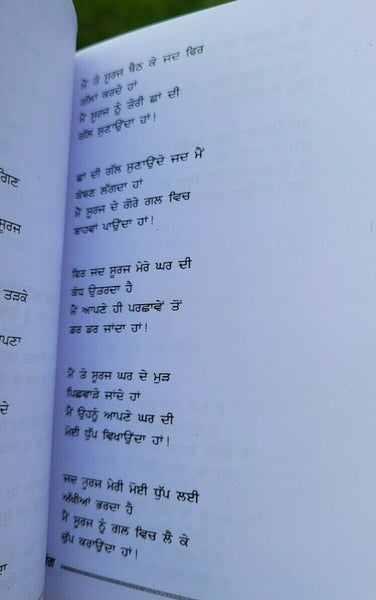 ਗਿਣ
ਸੂਰਜ
ਤੜਕੇ
ਪਣਾ
ਦੇ
ਮੈਂ ਤੇ ਸੂਰਜ ਬੈਠ ਕੇ ਜਦ ਫਿਰ
ਗੱਲਾਂ ਕਰਦੇ ਹਾਂ
ਮੈਂ ਸੂਰਜ ਨੂੰ ਤੇਰੀ ਛਾਂ ਦੀ
ਗੱਲ ਸੁਣਾਉਂਦਾ ਹਾਂ!
ਛਾਂ ਦੀ ਗੱਲ ਸੁਣਾਉਂਦੇ ਜਦ ਮੈਂ
ਕੰਬਣ ਲੱਗਦਾ ਹਾਂ
ਮੈਂ ਸੂਰਜ ਦੇ ਗੋਰੇ ਗਲ ਵਿਚ
ਬਾਹਵਾਂ ਪਾਉਂਦਾ ਹਾਂ!
ਫਿਰ ਜਦ ਸੂਰਜ ਮੇਰੇ ਘਰ ਦੀ
ਕੰਧ ਉਤਰਦਾ ਹੈ
ਮੈਂ ਆਪਣੇ ਹੀ ਪਰਛਾਵੇਂ ਤੋਂ
ਡਰ ਡਰ ਜਾਂਦਾ ਹਾਂ!
ਮੈਂ ਤੇ ਸੂਰਜ ਘਰ ਦੇ ਮੁੜ
ਪਿਛਵਾੜੇ ਜਾਂਦੇ ਹਾਂ
ਮੈਂ ਉਹਨੂੰ ਆਪਣੇ ਘਰ ਦੀ
ਮੋਈ ਧੁੱਪ ਵਿਖਾਉਂਦਾ ਹਾਂ!
ਜਦ ਸੂਰਜ ਮੇਰੀ ਮੋਈ ਧੁੱਪ ਲਈ
ਅੱਖੀਆਂ ਭਰਦਾ ਹੈ
ਮੈਂ ਸੂਰਜ ਨੂੰ ਗਲ ਵਿਚ ਲੈ ਕੇ
ਚੁੱਪ ਕਰਾਉਂਦਾ ਹਾਂ!